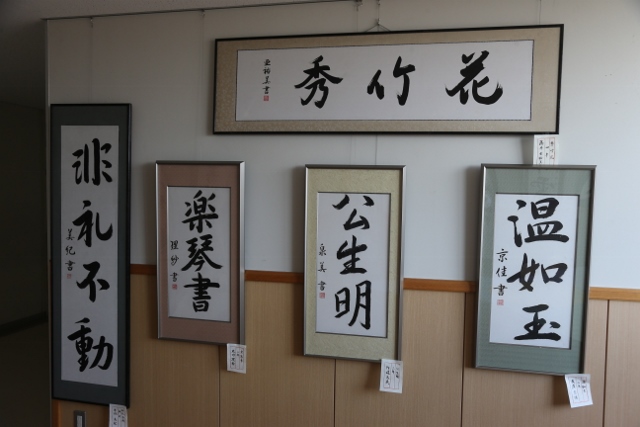 花竹秀
亜裕美書
温如玉
京佳書
公生明
泉美書
楽琴書
理紗書
非礼不動
美紀書